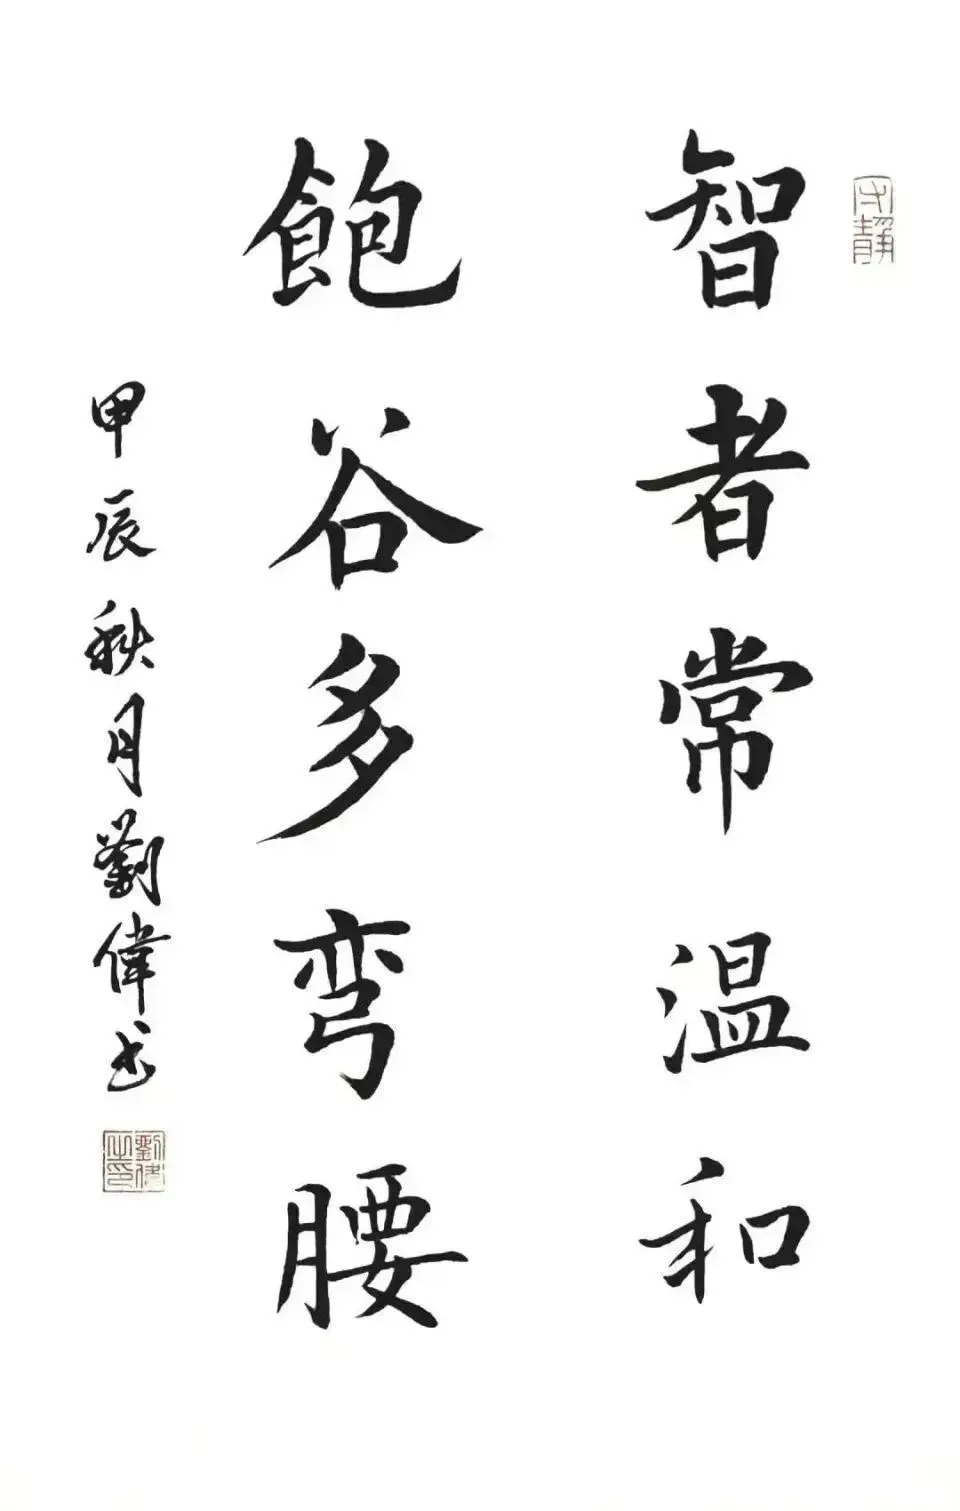 守静
智者常温和
飽谷多弯腰
甲辰秋月劉偉书
劉偉之印